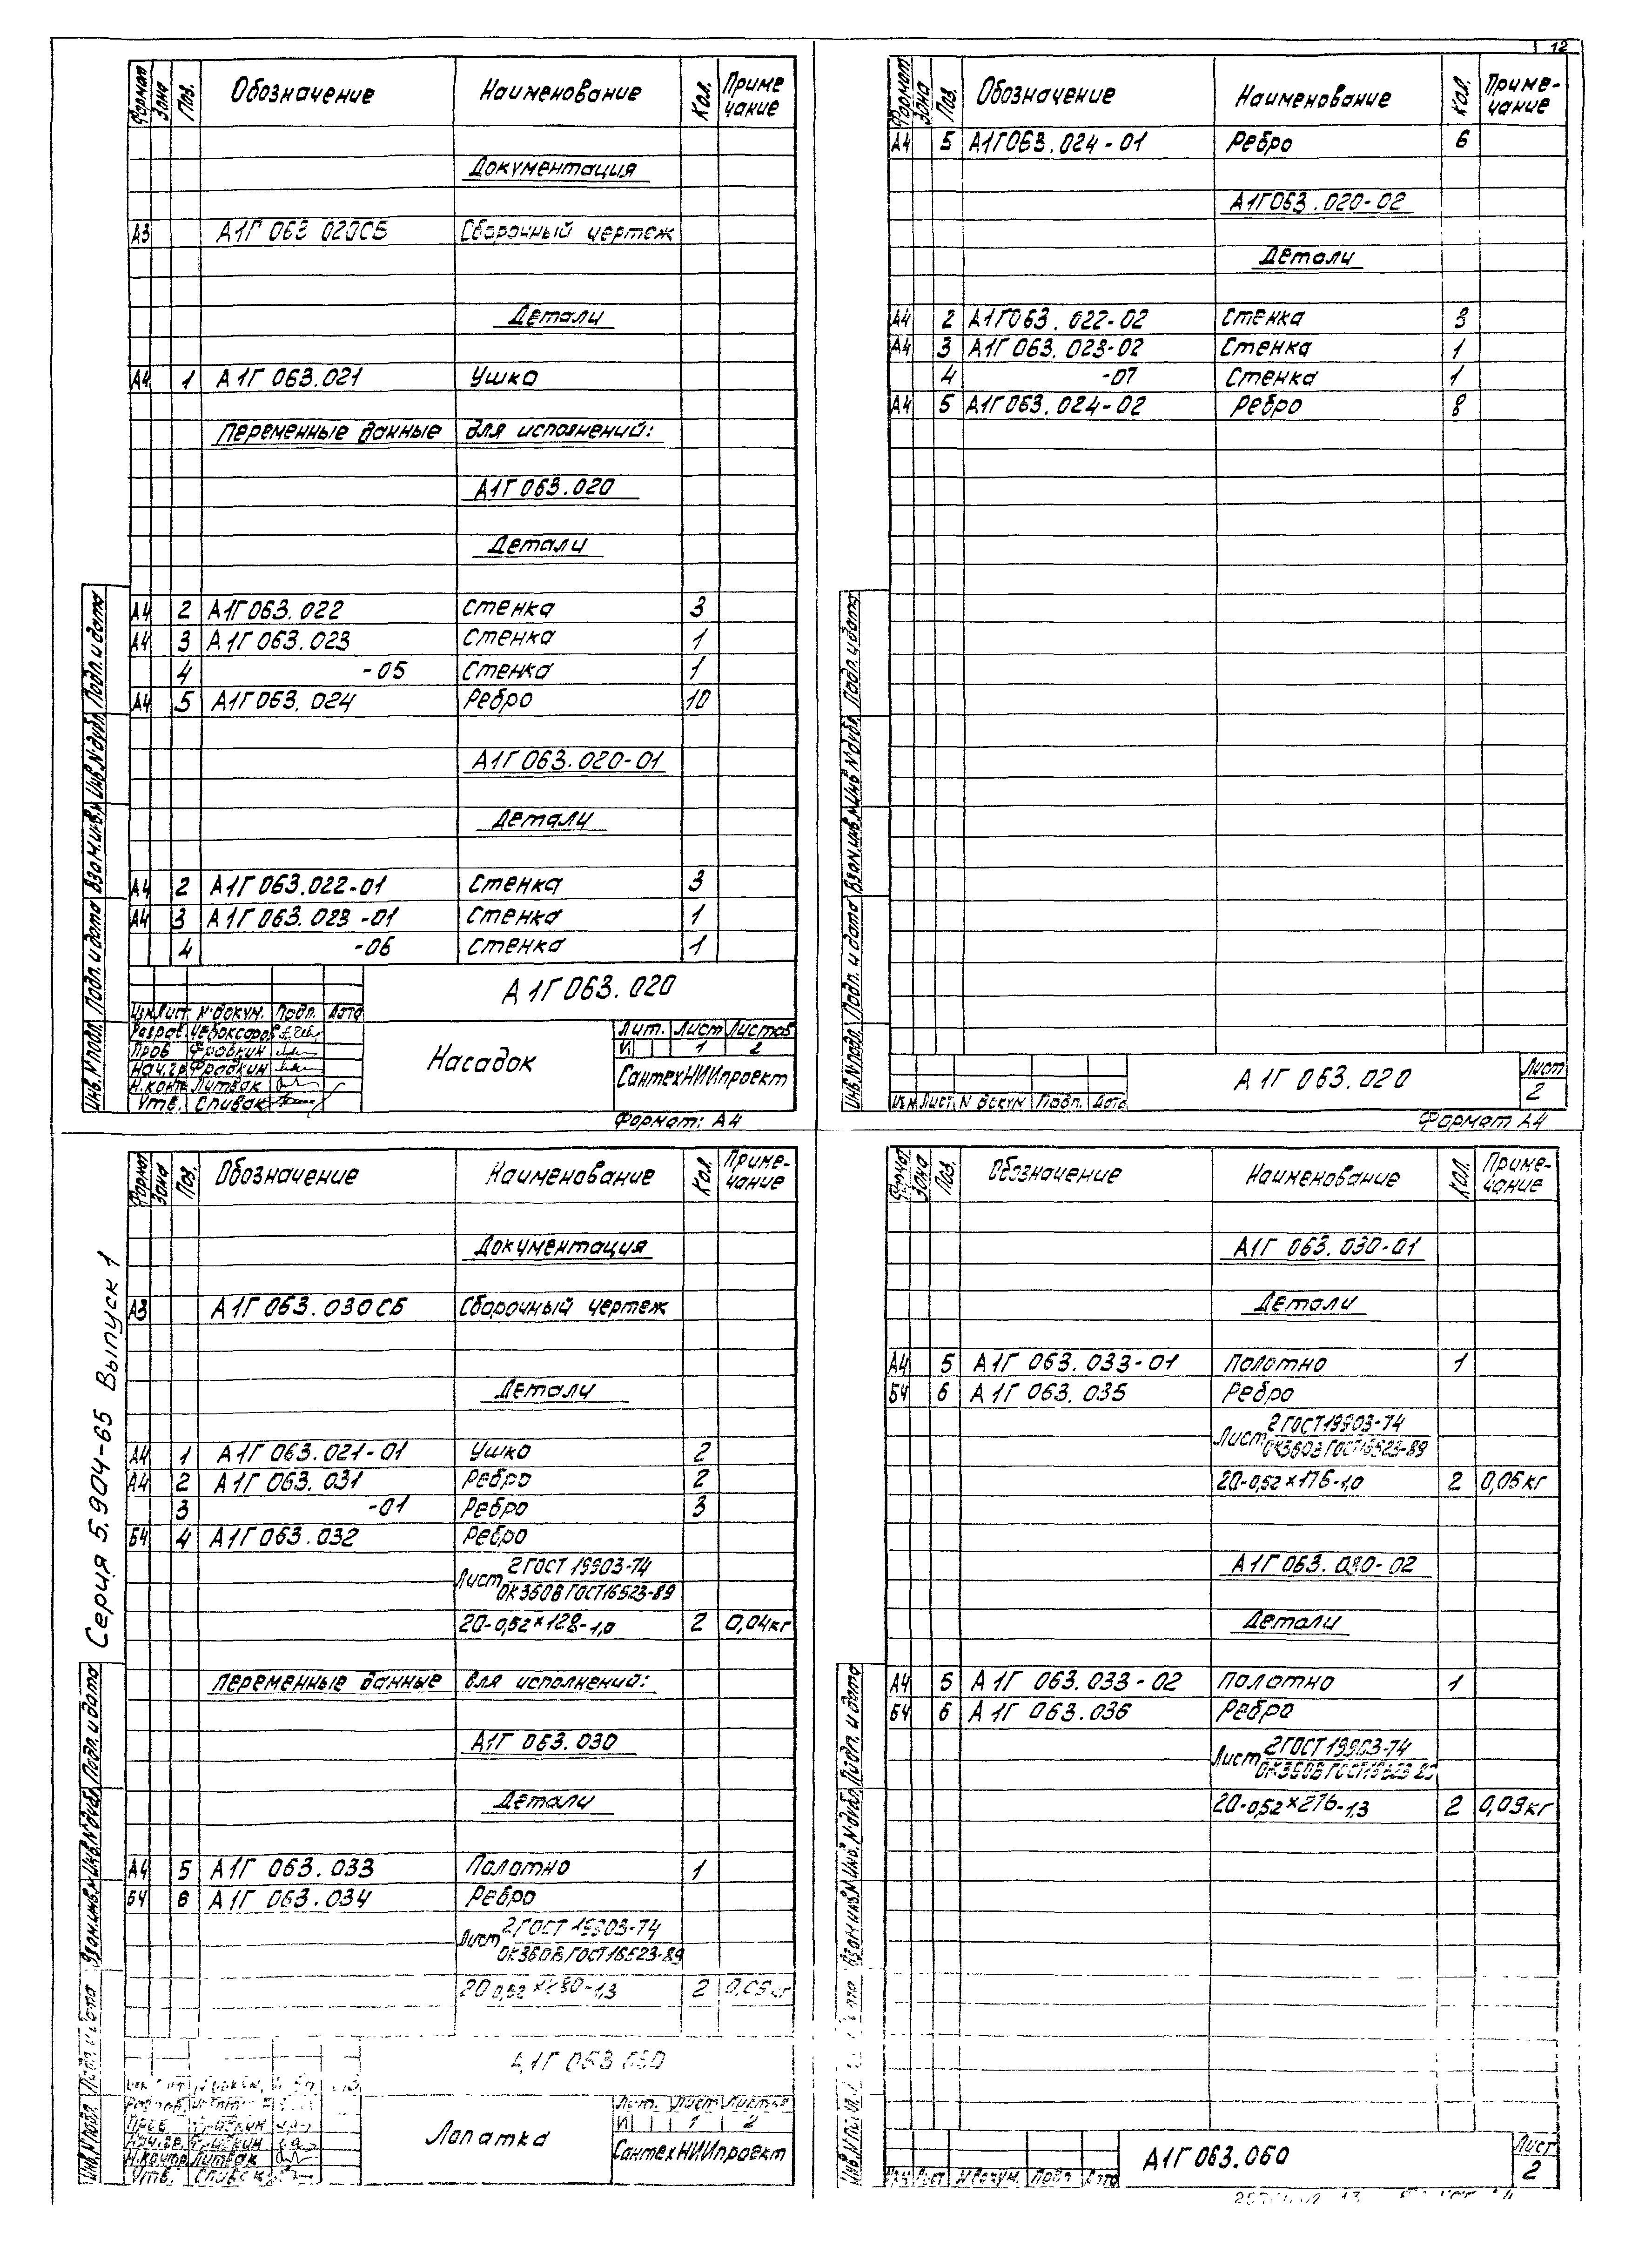 12
Формат Зона Поз. Обозначение Наименование Кол. Приме чание
Документация
А3 А1Г 063 020СБ Сборочный чертеж
Детали
А4 1 А1Г 063.021 Ушко
Переменные данные для исполнений:
А1Г 063.020
Детали
А4 2 А1Г 063.022 Стенка 3
А4 3 А1Г 063.023 Стенка 1
4 -05 Стенка 1
А4 5 А1Г 063.024 Ребро 10
А1Г 063.020-01
Детали
А4 2 А1Г 063.022-01 Стенка 3
А4 3 А1Г 063.023-01 Стенка 1
4 -06 Стенка 1
А1Г 063.020
Изм Лист N докум. Подп. Дата
Разраб. Чебоксаров
Пров Фравкин
Нач.гр Фравкин
Н.конт Литвак
Утв. Спивак
Насадок
Лит. Лист Листов
И 1 2
СантехНИИпроект
Формат: А4
Инв.N подл. Подп. и дата Взам.инв.N Инв.N дубл. Подп. и дата
Формат Зона Поз. Обозначение Наименование Кол. Приме-чание
А4 5 А1Г 063.024-01 Ребро 6
А1Г 063.020-02
Детали
А4 2 А1Г 063.022-02 Стенка 3
А4 3 А1Г 063.023-02 Стенка 1
4 -07 Стенка 1
А4 5 А1Г 063.024-02 Ребро 8
Изм Лист N докум Подп. Дата
А1Г 063.020
Лист
2
Формат А4
Инв.N подл. Подп. и дата Взам.инв.N Инв N дубл. Подп. и дата
Серия 5.904-65 Выпуск 1
Формат Зона Поз. Обозначение Наименование Кол. Приме-чание
Документация
А3 А1Г 063.030СБ Сборочный чертеж
Детали
А4 1 А1Г 063.021-01 Ушко 2
А4 2 А1Г 063.031 Ребро 2
3 -01 Ребро 3
Б4 4 А1Г 063.032 Ребро
2 ГОСТ 19903-74
Лист
ОК360В ГОСТ16523-89
20-0,52×128-1,0 2 0,04кг
Переменные данные для исполнений:
А1Г 063.030
Детали
А4 5 А1Г 063.033 Полотно 1
Б4 6 А1Г 063.034 Ребро
2 ГОСТ 19903-74
Лист
ОК360В ГОСТ16523-89
2
А1Г 063
Лопатка
Фравкин
Нач.гр. Фравкин
Н.контр. Литвак
Утв. Спивак
Лит. Лист
И 1 2
СантехНИИпроект
Инв.N подл. Подп. и дата Взам.инв.N Инв.N дубл. Подп. и дата
Формат Зона Поз. Обозначение Наименование Кол. Приме-чание
А1Г 063.030-01
Детали
А4 5 А1Г 063.033-01 Полотно 1
Б4 6 А1Г 063.035 Ребро
2 ГОСТ 19903-74
Лист
ОК360В ГОСТ16523-89
20-0,52×176-1,0 2 0,05кг
А1Г 063.030-02
Детали
А4 5 А1Г 063.033-02 Полотно 1
Б4 6 А1Г 063.036 Ребро
2 ГОСТ 19903-74
Лист
ОК360В ГОСТ16523
20-0,52×276-1,3 2 0,09кг
Лист N докум. Подп
А1Г 063.060
Лист
2
Взам инв.N Инв. N дубл. Подп. и дата